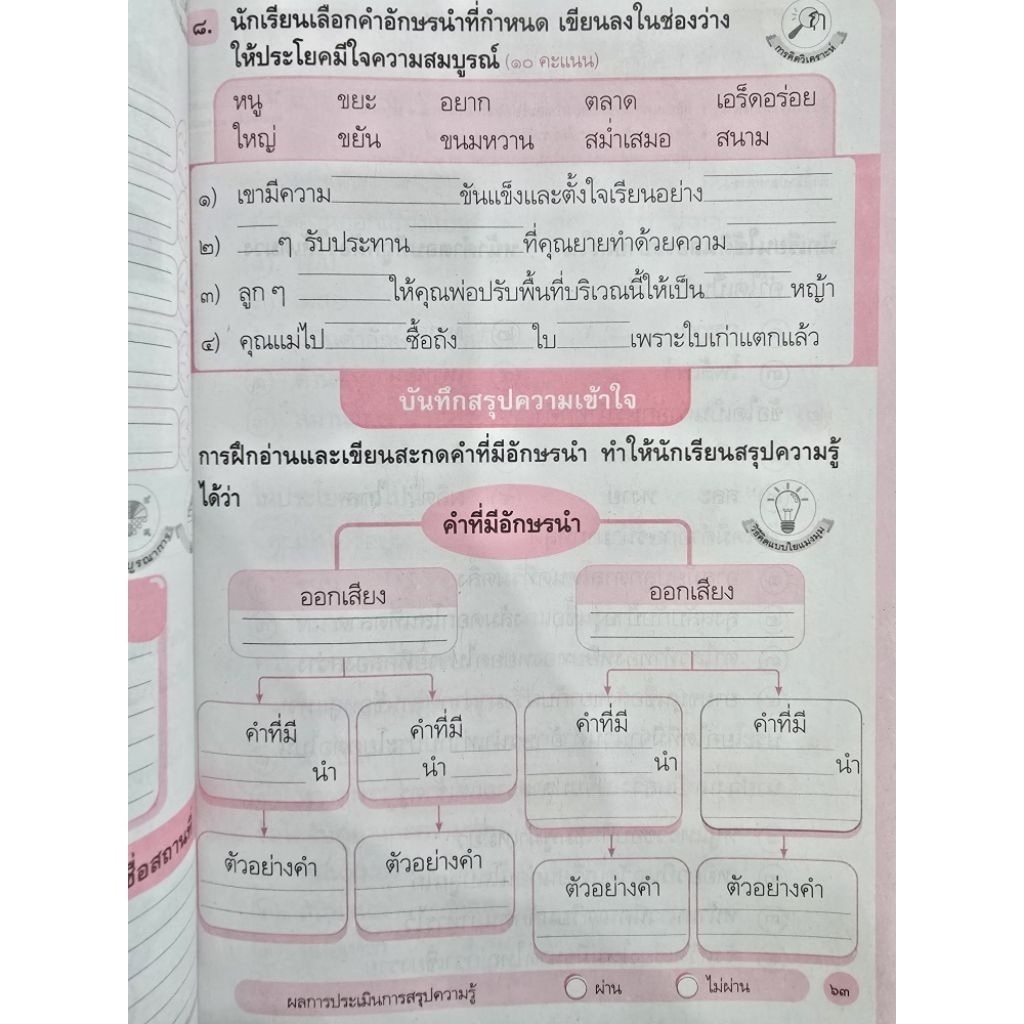 ๘. นักเรียนเลือกคำอักษรนำที่กำหนด เขียนลงในช่องว่าง
ให้ประโยคมีใจความสมบูรณ์ (๑๐ คะแนน)
การคิดวิเคราะห์
หนู ขยะ อยาก ตลาด เอร็ดอร่อย
ใหญ่ ขยัน ขนมหวาน สม่ำเสมอ สนาม
๑) เขามีความ ขันแข็งและตั้งใจเรียนอย่าง
๒) ๆ รับประทาน ที่คุณยายทำด้วยความ
๓) ลูก ๆ ให้คุณพ่อปรับพื้นที่บริเวณนี้ให้เป็น หญ้า
๔) คุณแม่ไป ซื้อถัง ใบ เพราะใบเก่าแตกแล้ว
บันทึกสรุปความเข้าใจ
การฝึกอ่านและเขียนสะกดคำที่มีอักษรนำ ทำให้นักเรียนสรุปความรู้
ได้ว่า
วิธีคิดแบบใยแมงมุม
คำที่มีอักษรนำ
ออกเสียง ออกเสียง
คำที่มี คำที่มี คำที่มี คำที่มี
นำ นำ นำ นำ
ตัวอย่างคำ ตัวอย่างคำ ตัวอย่างคำ ตัวอย่างคำ
ผลการประเมินการสรุปความรู้ ผ่าน ไม่ผ่าน ๖๓